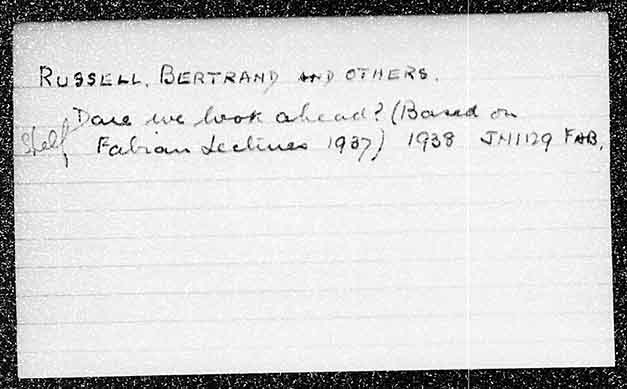 RUSSELL, BERTRAND AND OTHERS.
Dare we look ahead? (Based on
Shelf Fabian Lectures 1937) 1938 JN1129 FAB,